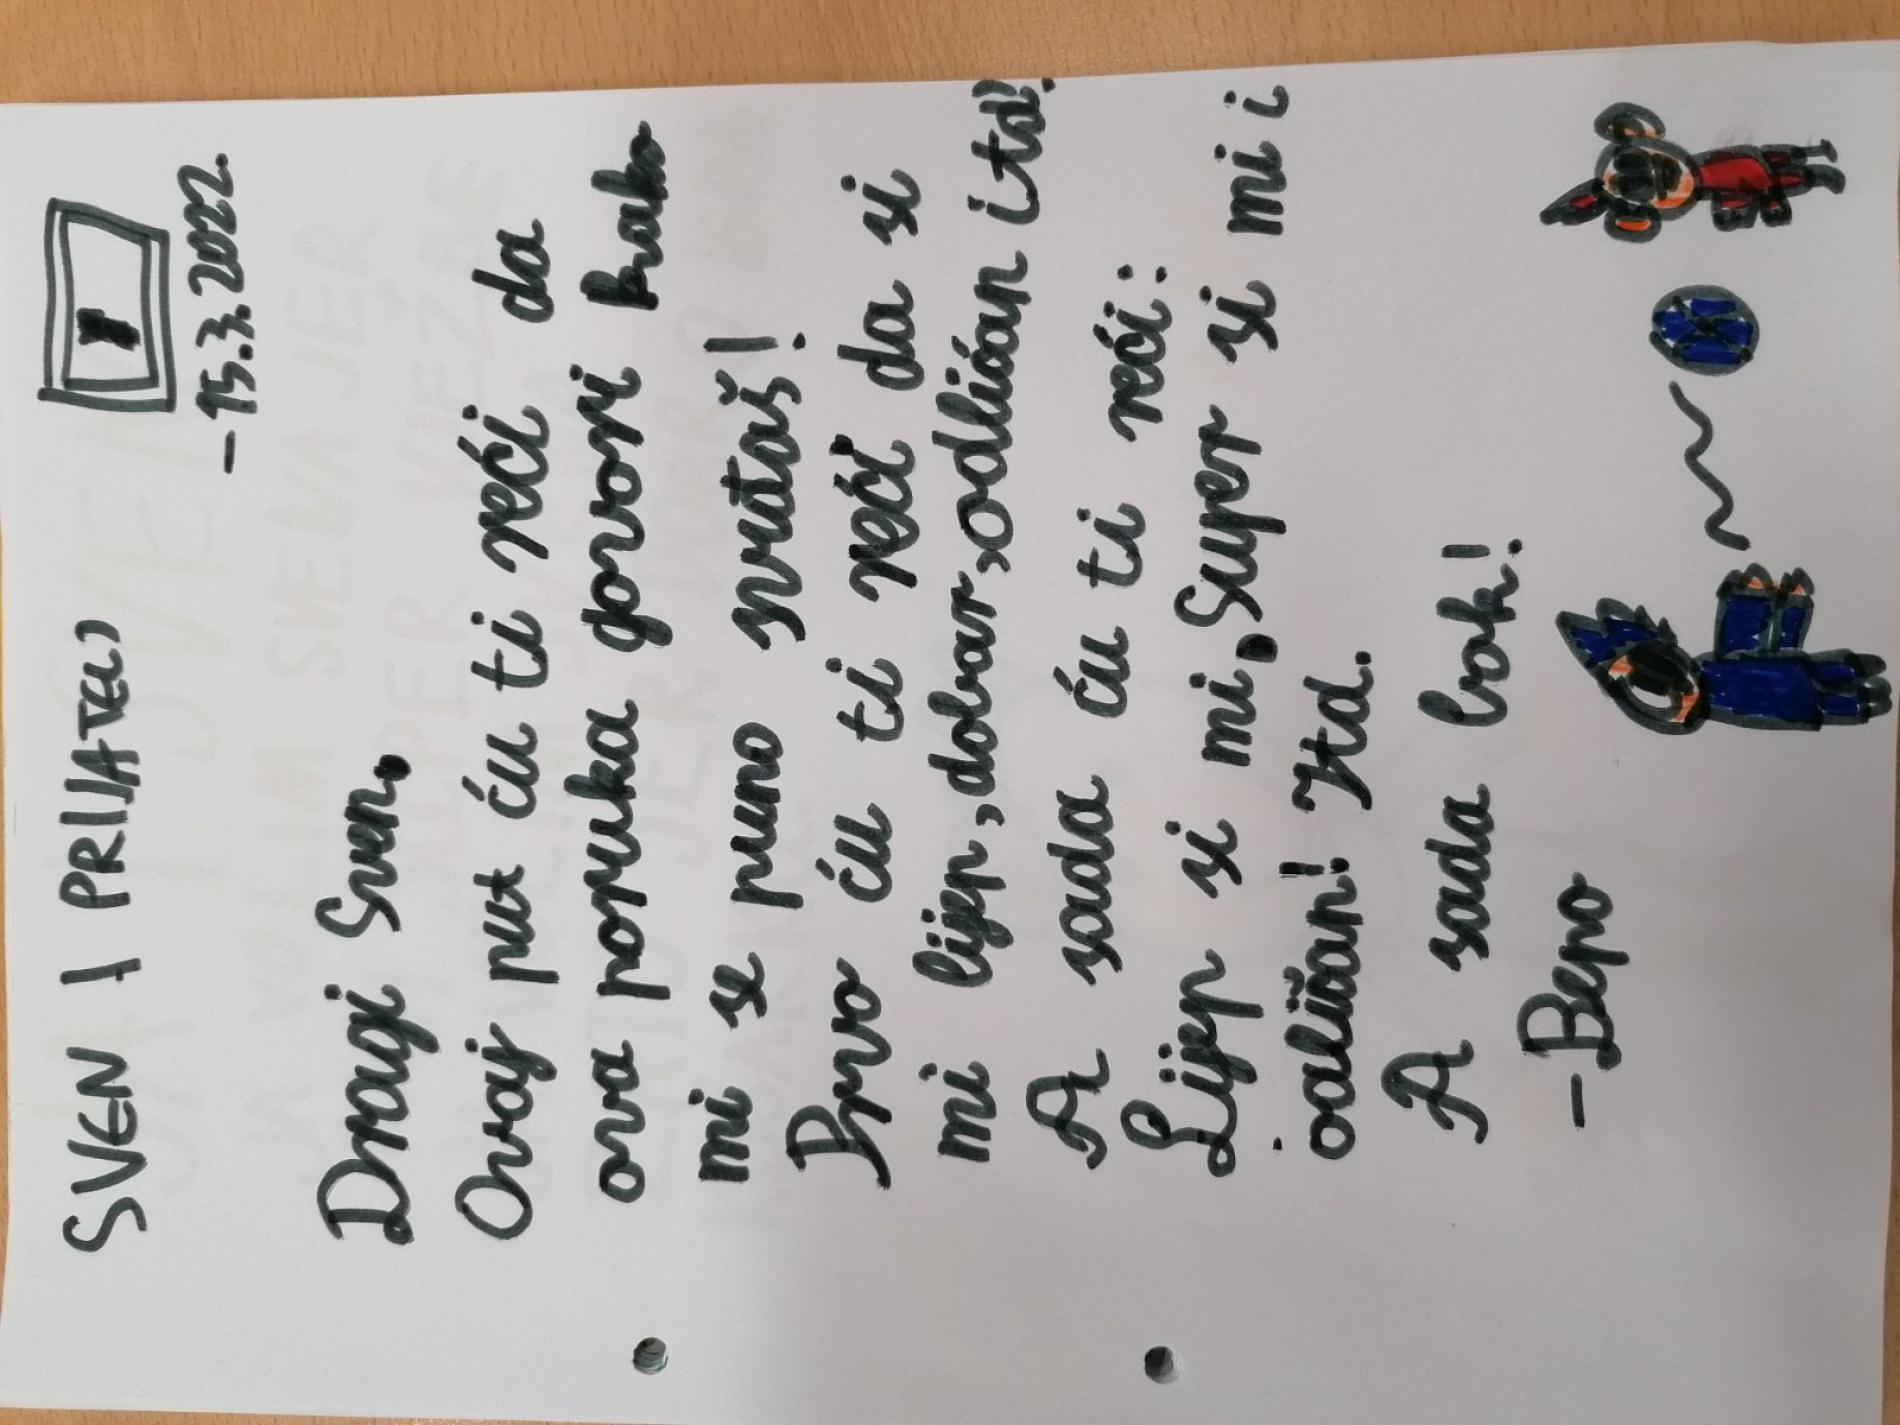 SVEN I PRIJATELJ
1
-15.3.2022.
Dragi Sven.
Ovaj put ću ti reći da
ova poruka govori kako
mi se puno sviđaš!
Prvo ću ti reći da si
mi lijep, dobar, odličan itd!
A sada ću ti reći:
Lijep si mi, Super si mi i
odličan! Itd.
A sada bok!
-Bepo